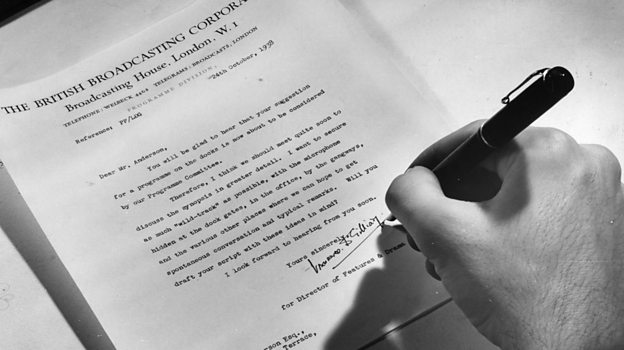 THE BRITISH BROADCASTING CORPORA
Broadcasting House, London, W. 1
TELEPHONE: WELBECK 4468 TELEGRAMS: BROADCASTS, LONDON
PROGRAMME DIVISION.
Reference: PF/LGG
24th October, 1938
Dear Mr. Anderson,
You will be glad to hear that your suggestion
for a programme on the docks is now about to be considered
by our Programme Committee.
Therefore, I think we should meet quite soon to
discuss the synopsis in greater detail. I want to secure
as much "wild-track" as possible, with the microphone
hidden at the dock gates, in the office, by the gangways,
and the various other places where we can hope to get
spontaneous conversation and typical remarks. Will you
draft your script with these ideas in mind?
I look forward to hearing from you soon.
Yours sincerely,
for Director of Features & Drama
rson Esq.,
Terrace,